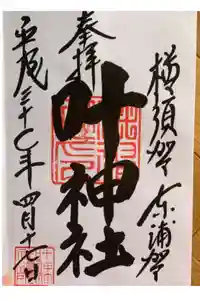 横須賀 東浦賀
奉拝
叶神社
平成三十年 四月十七日